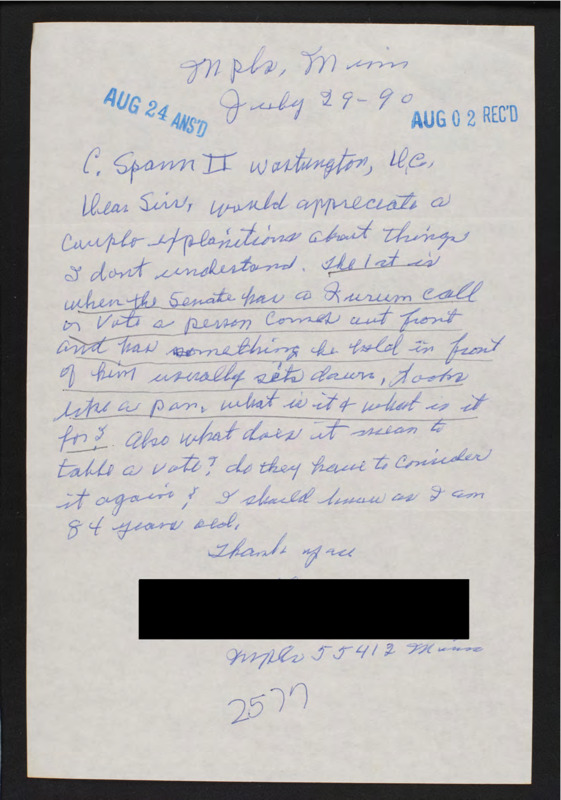 Mpls, Minn
July 29-90
AUG 24 ANS'D
AUG 02 REC'D
C. Spann II Washington, D.C.
Dear Sir, would appreciate a
couple explanitions about things
I dont understand. The 1st is
when the Senate has a Qurum call
or Vote a person comes out front
and has something he hold in front
of him usually sets down, Looks
like a pan, what is it & what is it
for? Also what does it mean to
table a vote? do they have to consider
it again? I should know as I am
84 years old.
Thank you
Mpls 55412 Minn
2577